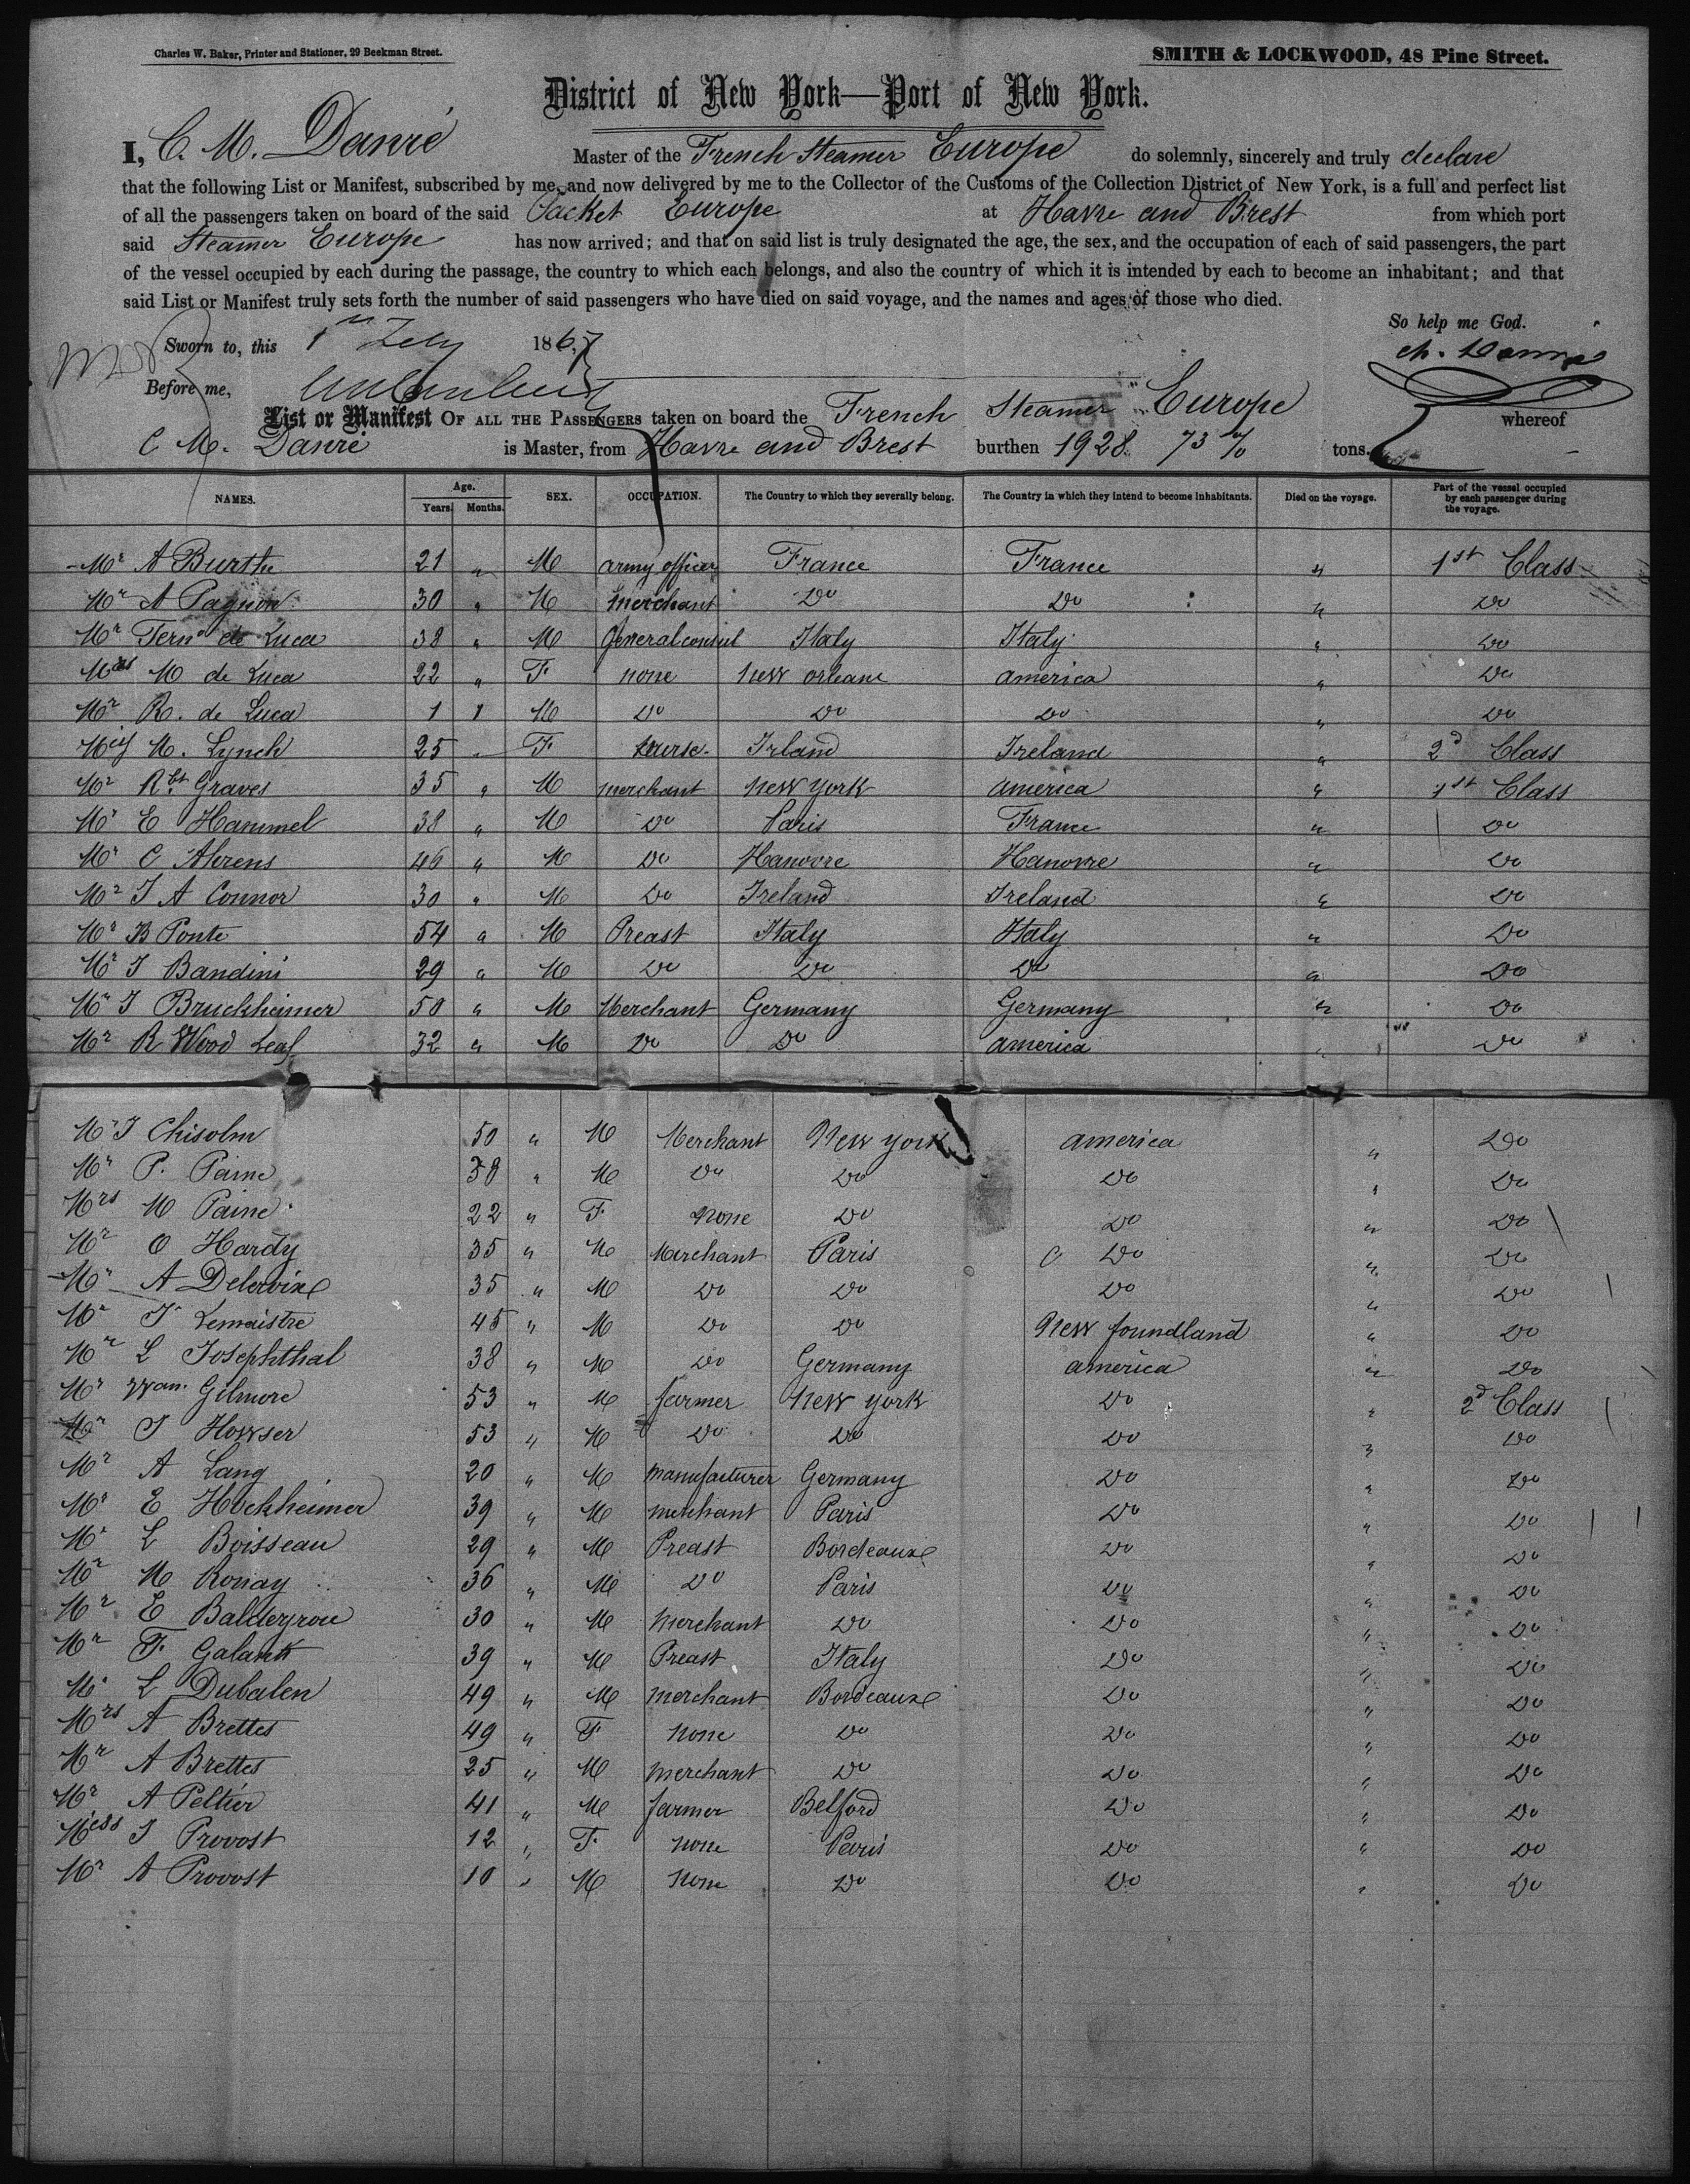 Charles W. Baker, Printer and Stationer, 29 Beekman Street.
SMITH & LOCKWOOD, 48 Pine Street.
District of New York—Port of New York.
I, C. M. Danré Master of the French Steamer Europe do solemnly, sincerely and truly declare
that the following List or Manifest, subscribed by me, and now delivered by me to the Collector of the Customs of the Collection District of New York, is a full and perfect list
of all the passengers taken on board of the said Packet Europe at Havre and Brest from which port
said Steamer Europe has now arrived; and that on said list is truly designated the age, the sex, and the occupation of each of said passengers, the part
of the vessel occupied by each during the passage, the country to which each belongs, and also the country of which it is intended by each to become an inhabitant; and that
said List or Manifest truly sets forth the number of said passengers who have died on said voyage, and the names and ages of those who died.
So help me God.
Sworn to, this 1st Feby 1867
Before me,
List or Manifest OF ALL THE PASSENGERS taken on board the French Steamer Europe whereof
C M. Danré is Master, from Havre and Brest burthen 1928 73 % tons.
NAMES. Age. Years. Months. SEX. OCCUPATION. The Country to which they severally belong. The Country in which they intend to become inhabitants. Died on the voyage. Part of the vessel occupied by each passenger during the voyage.
Mr A Burthe 21 " M army officer France France " 1st Class
Mr A Pagnon 30 " M merchant Do Do " Do
Mr Fern° de Luca 38 " M General consul Italy Italy " Do
Mrs M de Luca 22 " F none New orleans america " Do
Mr R. de Luca 1 1 M Do Do Do " Do
Miss M. Lynch 25 " F nurse Irland Ireland " 2d Class
Mr Rbt Graves 35 " M merchant New York america " 1st Class
Mr E Hammel 38 " M Do Paris France " Do
Mr C Ahrens 46 " M Do Hanovre Hanovre " Do
Mr J A Connor 30 " M Do Ireland Ireland " Do
Mr B Ponte 54 " M Preast Italy Italy " Do
Mr J Bandini 29 " M Do Do Do " Do
Mr J Bruckheimer 50 " M Merchant Germany Germany " Do
Mr R Wood Leaf 32 " M Do Do america " Do
Mr J Chisolm 50 " M Merchant New york america " Do
Mr P. Paine 38 " M Do Do Do " Do
Mrs M Paine 22 " F None Do Do " Do
Mr O Hardy 35 " M Merchant Paris Do " Do
Mr A 35 " M Do Do Do " Do
Mr J Lemaistre 45 " M Do Do New foundland " Do
Mr L Josephthal 38 " M Do Germany america " Do
Mr Wam. Gilmore 53 " M farmer New york Do " 2d Class
Mr J Howser 53 " M Do Do Do " Do
Mr A Lang 20 " M manufacturer Germany Do " Do
Mr E Hockheimer 39 " M merchant Paris Do " Do
Mr L Boisseau 29 " M Preast Bordeaux Do " Do
Mr M Ronay 36 " M Do Paris Do " Do
Mr E 30 " M Merchant Do Do " Do
Mr F. Galanti 39 " M Preast Italy Do " Do
Mr L Dubalen 49 " M merchant Bordeaux Do " Do
Mrs A Brettes 49 " F none Do Do " Do
Mr A Brettes 25 " M merchant Do Do " Do
Mr A Peltier 41 " M farmer Belford Do " Do
Miss J Provost 12 " F none Paris Do " Do
Mr A Provost 10 " M none Do Do " Do